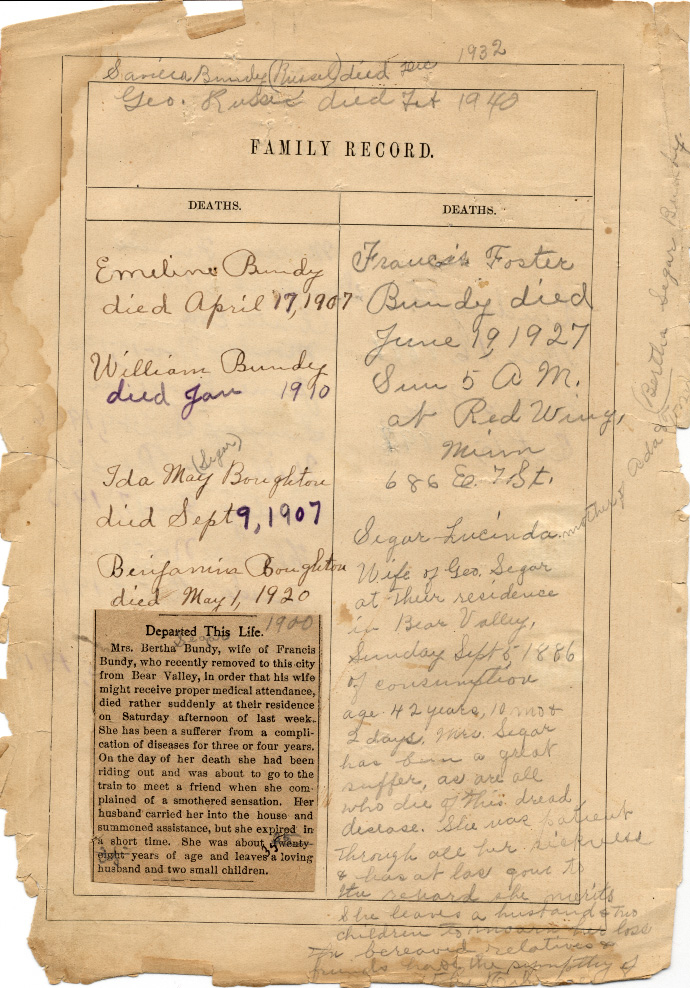 Bundy (Russel) died Dec 1932
Geo. died 1940
FAMILY RECORD.
DEATHS.
Emeline Bundy
died April 17, 1907
William Bundy
died Jan 1910
(Segar)
Ida May Boughton
died Sept 9, 1907
Benjamin Boughton
died May 1, 1920
1900
Departed This Life.
Segar
Mrs. Bertha Bundy, wife of Francis
Bundy, who recently removed to this city
from Bear Valley, in order that his wife
might receive proper medical attendance,
died rather suddenly at their residence
on Saturday afternoon of last week.
She has been a sufferer from a compli-
cation of diseases for three or four years.
On the day of her death she had been
riding out and was about to go to the
train to meet a friend when she com-
plained of a smothered sensation. Her
husband carried her into the house and
summoned assistance, but she expired in
a short time. She was about twenty-
eight years of age and leaves a loving
husband and two small children.
DEATHS.
Francis Foster
Bundy died
June 19, 1927
Sun 5 A M.
at Red Wing,
Minn
686 E. 7 St.
Segar-Lucinda
Wife of Geo. Segar
at their residence
in Bear Valley,
Sunday Sept 5 1886
of consumption
age 42 years, 10 mo &
2 days, Mrs. Segar
has been a great
suffer, as are all
who die of this dread
disease. She was patient
through all her sickness
& has at last gone to
the reward she merits
She leaves a husband & two
children to mourn her loss
bereaved relatives &
friends the sympathy of
mother of Ada &
(Bertha Segar Bundy.